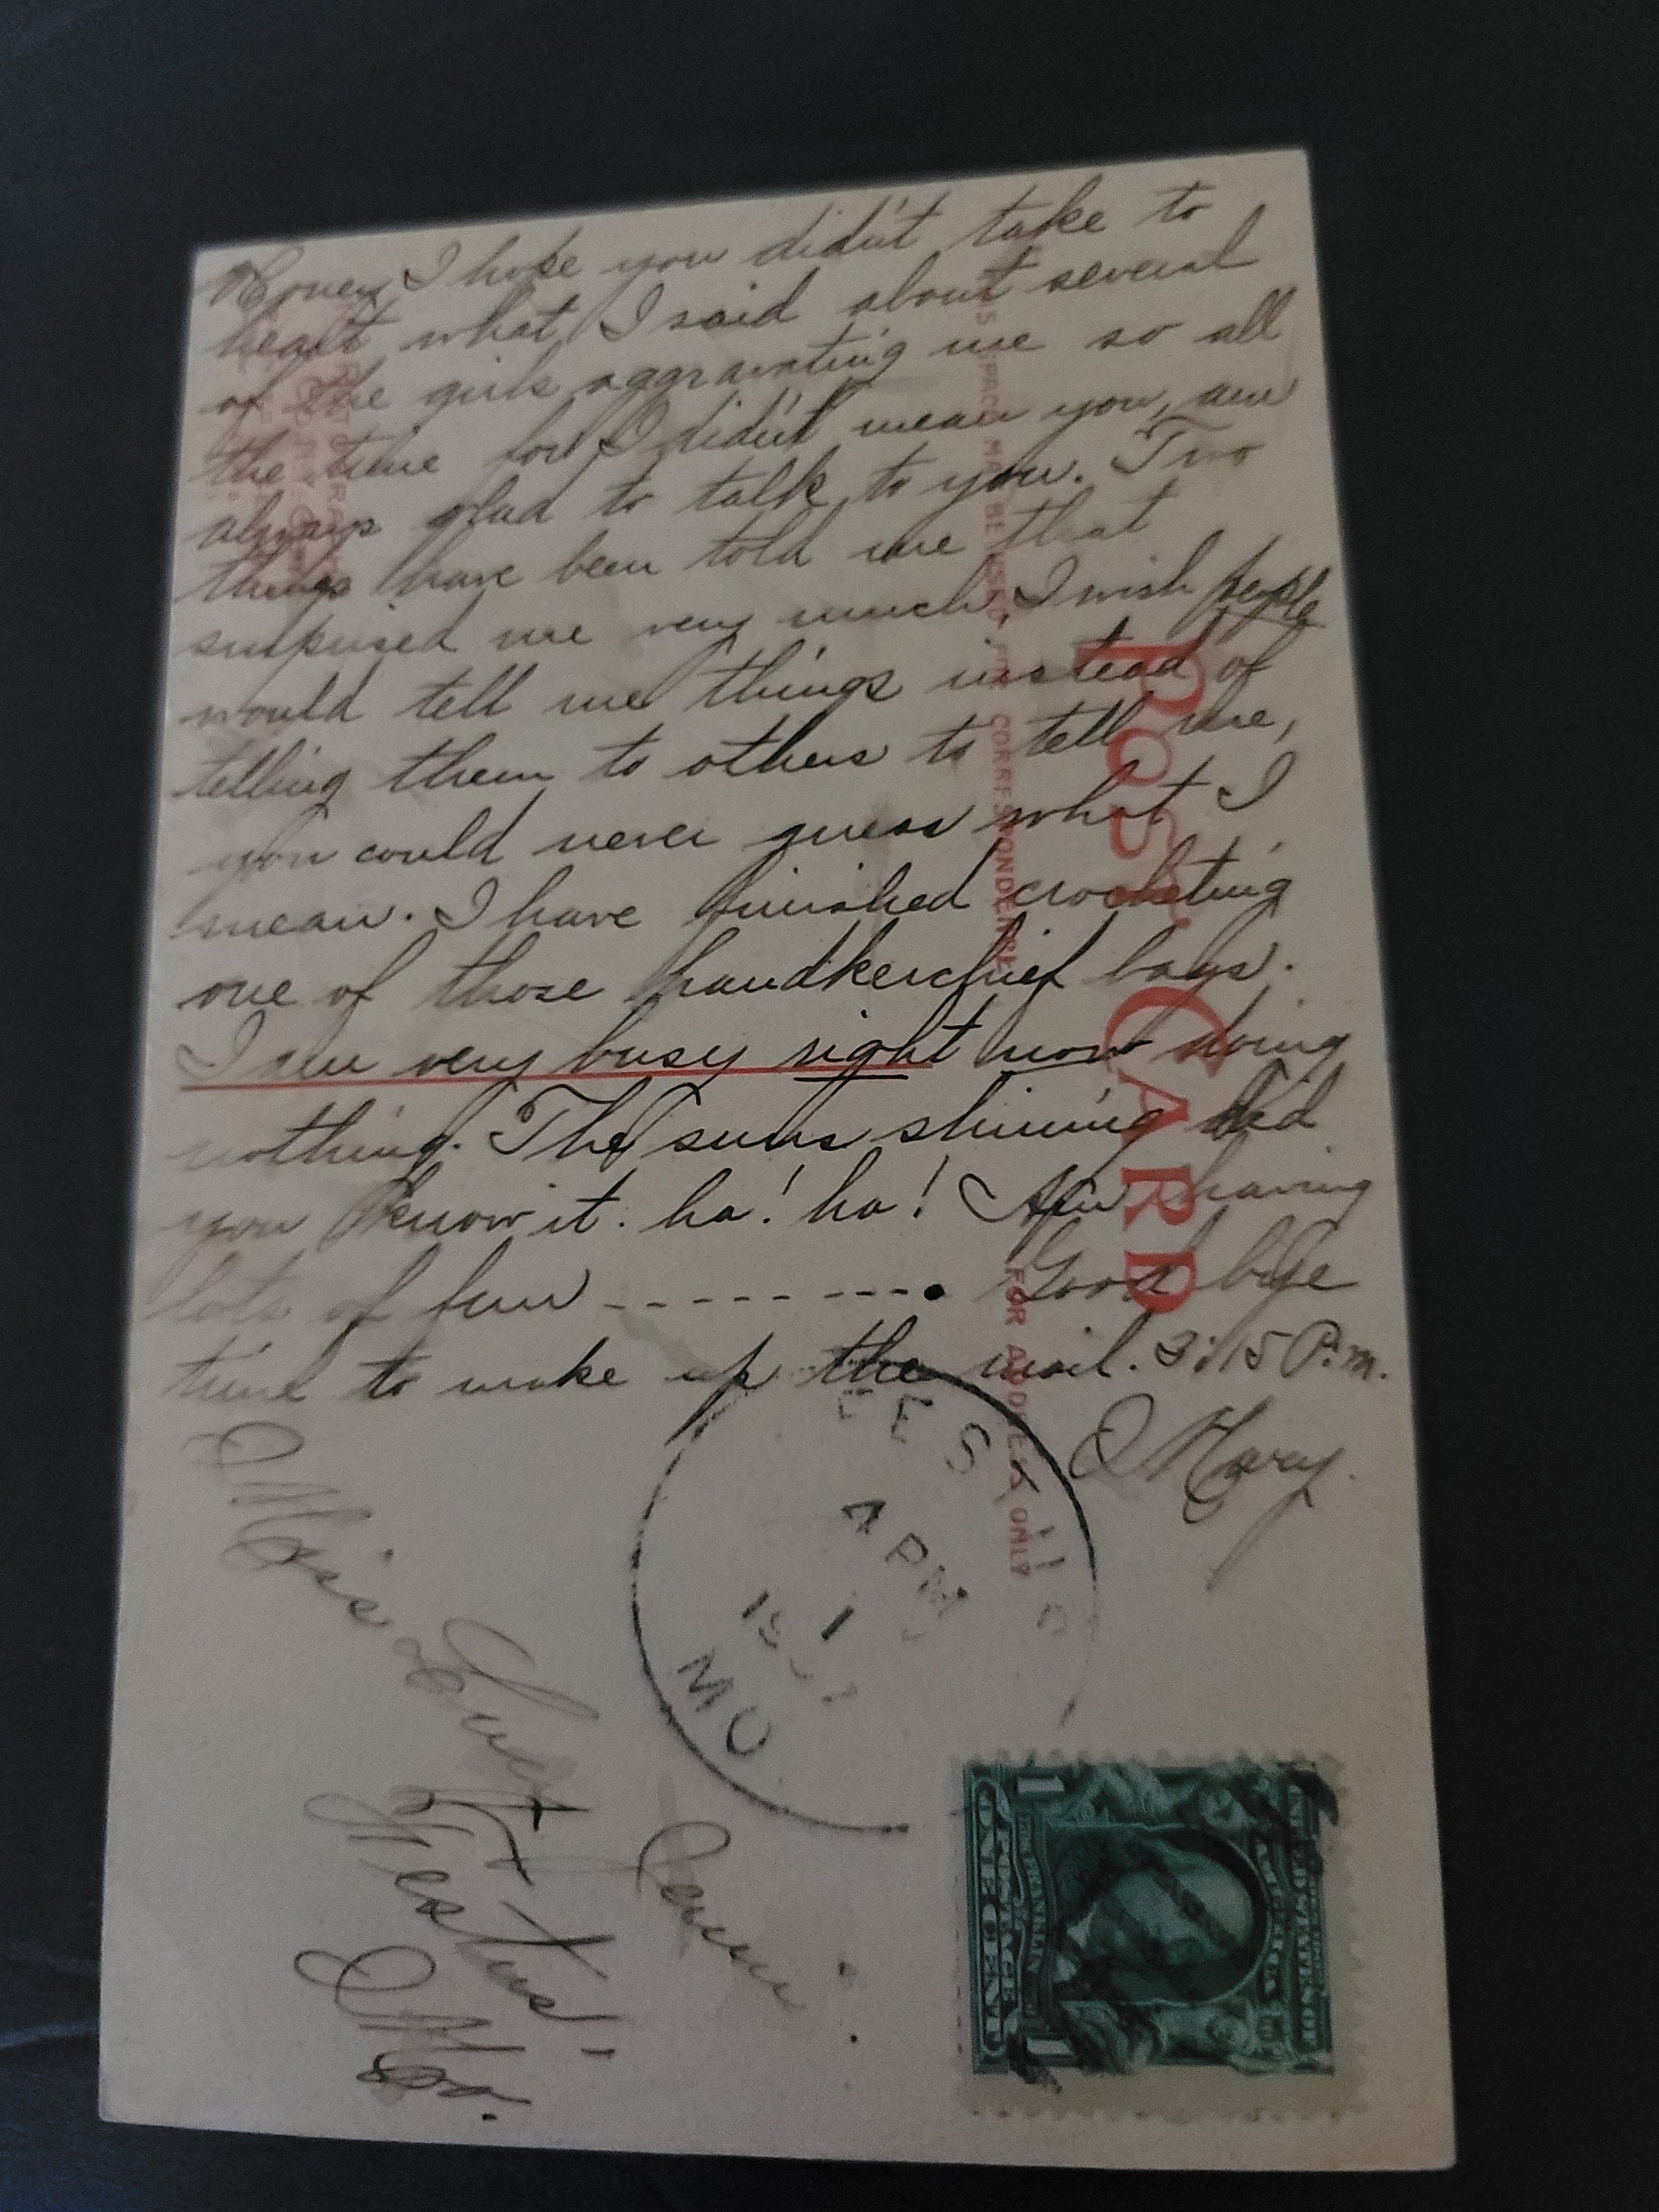 Honey, I hope you didn't take to
heart what I said about several
of the girls aggravating me so all
the time for I didn't mean you, am
always glad to talk to you. Two
things have been told me that
surprised me very much, I wish people
would tell me things instead of
telling them to others to tell me,
you could never guess what I
mean. I have finished crocheting
one of those handkerchief bags.
I am very busy right now doing
nothing. The suns shining did
you know it. ha! ha! Am having
lots of fun --------. Good bye
time to make up the mail. 3:15 P.m.
Mary.
POST CARD
THIS SPACE MAY BE USED FOR CORRESPONDENCE
FOR ADDRESS ONLY
4 PM
1
MO
Miss
Festus,
Mo.
UNITED STATES OF AMERICA
FRANKLIN
POSTAGE
1 ONE CENT 1